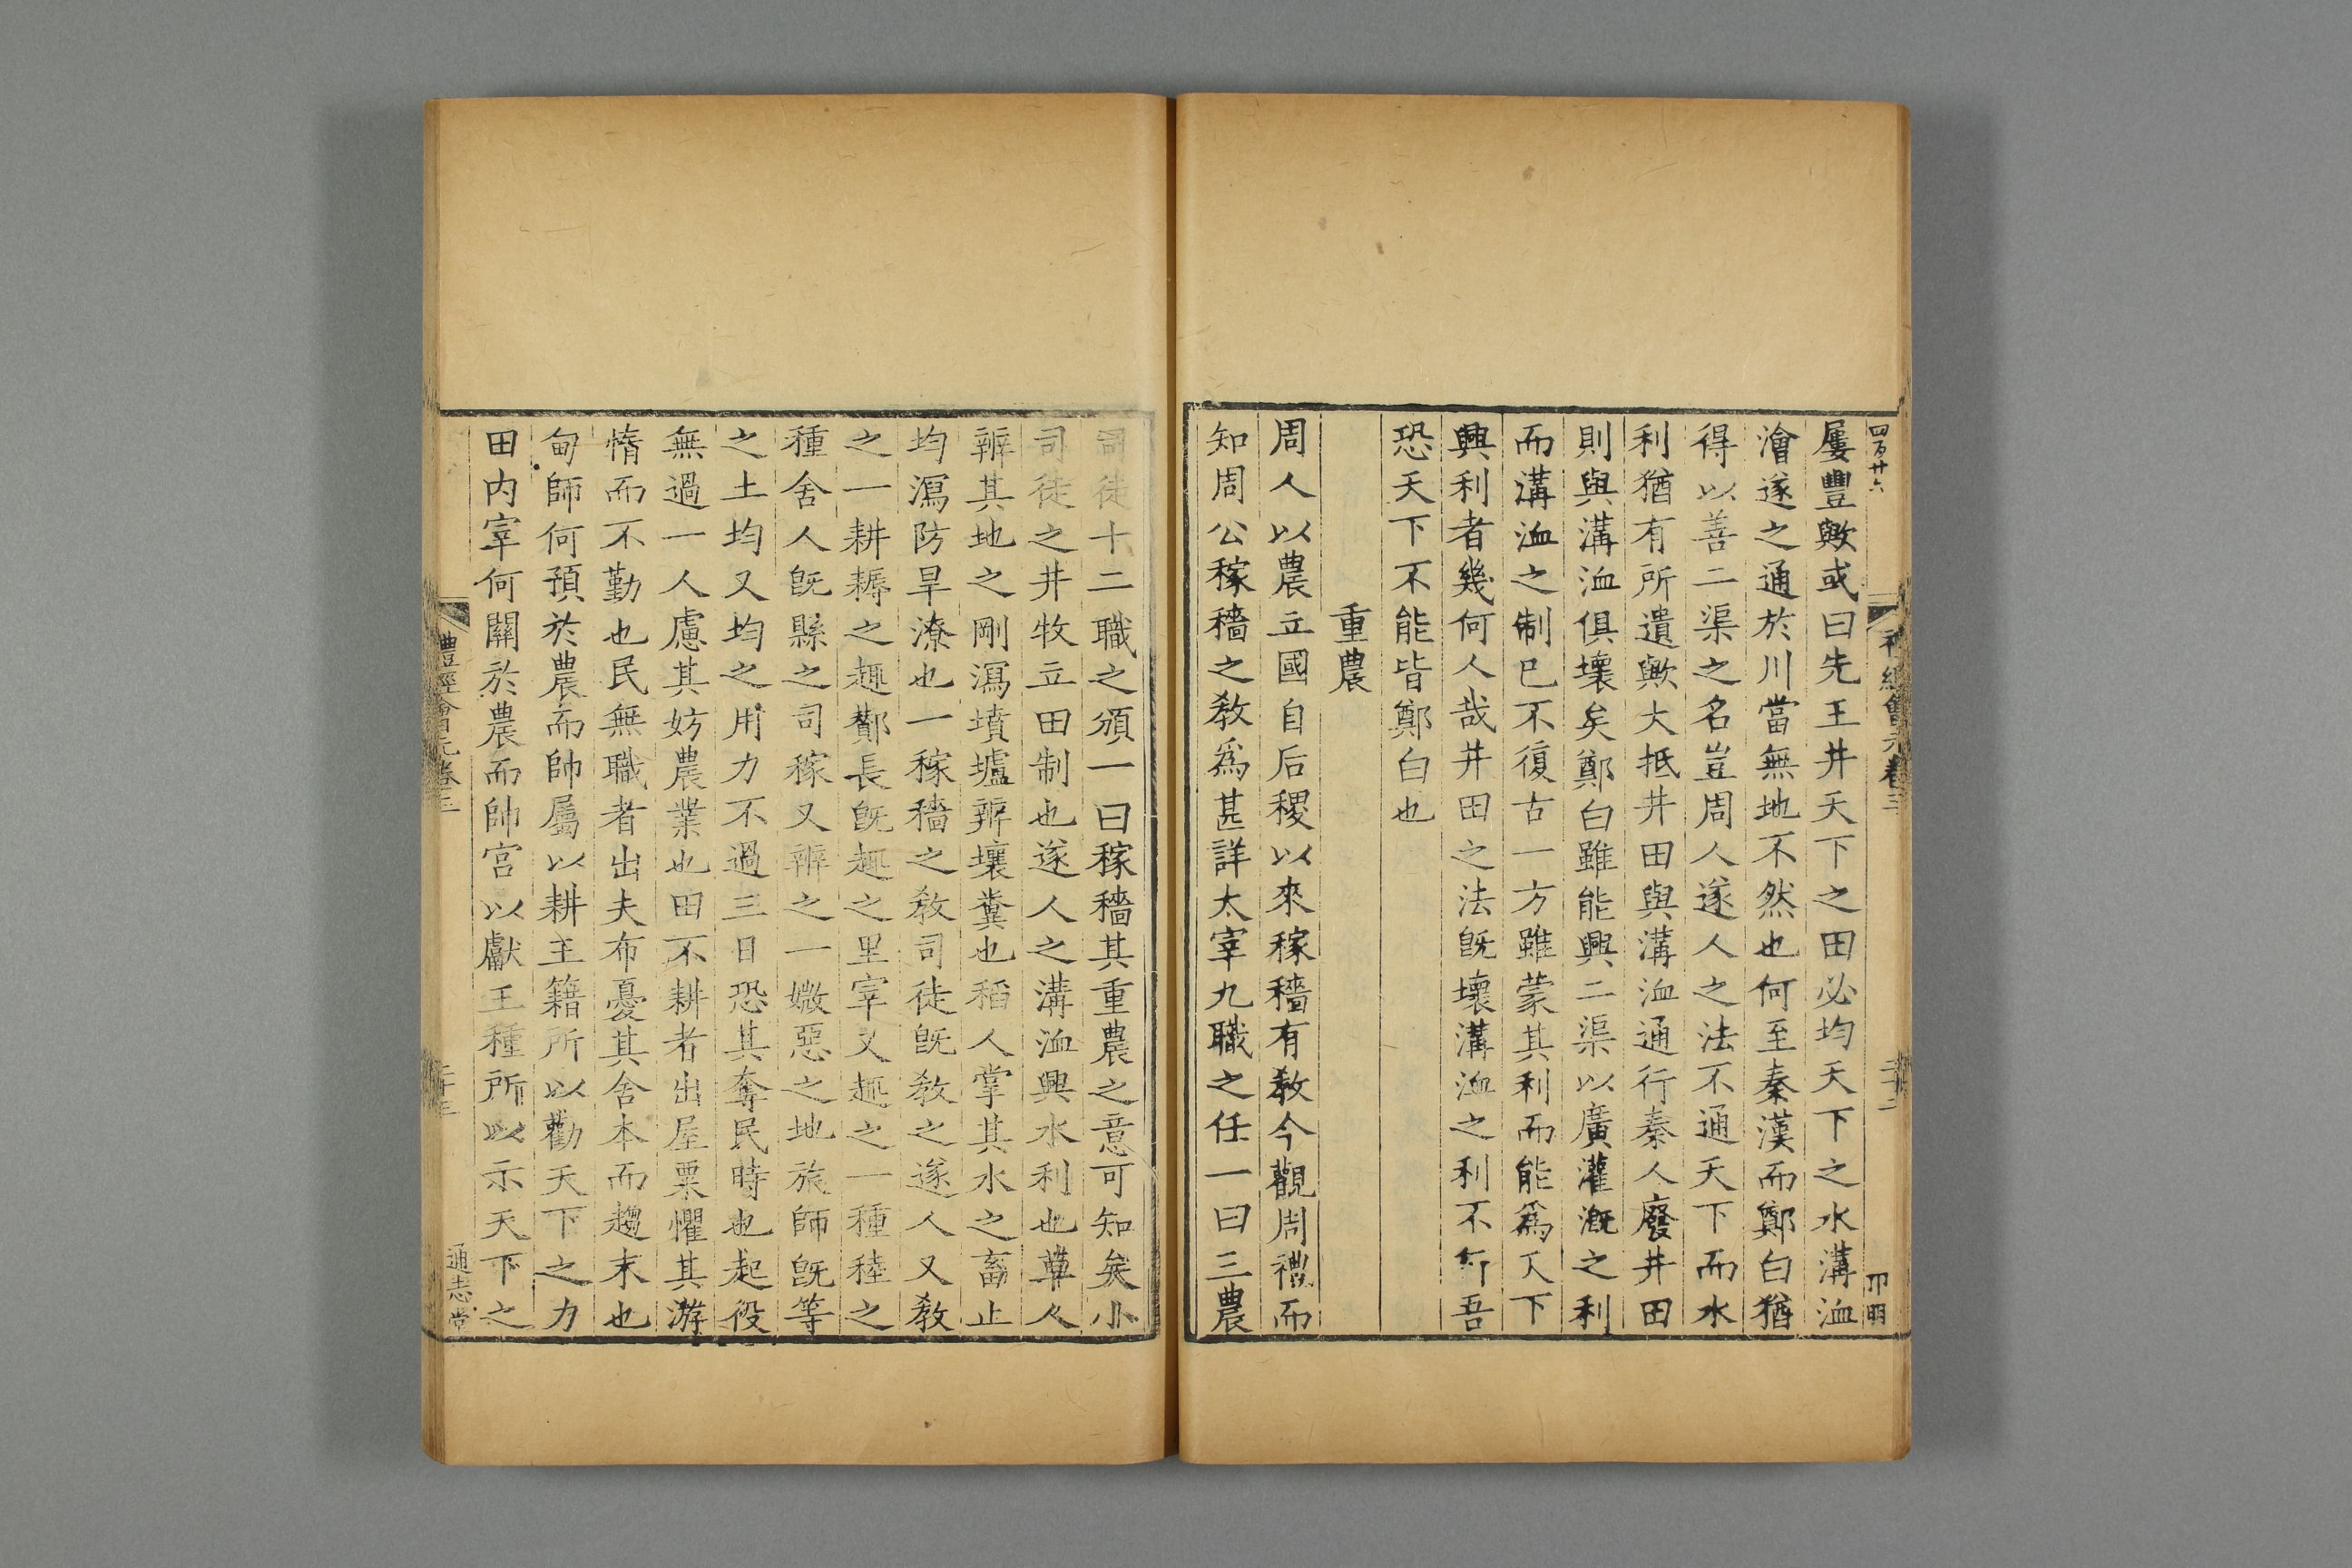 四百廿六
屢豐歟或曰先王井天下之田必均天下之水溝洫
澮遂之通於川當無地不然也何至秦漢而鄭白猶
得以善二渠之名豈周人遂人之法不通天下而水
利猶有所遺歟大抵井田與溝洫通行秦人廢井田
則與溝洫俱壞矣鄭白雖能興二渠以廣灌溉之利
而溝洫之制已不復古一方雖蒙其利而能爲天下
興利者幾何人哉井田之法旣壞溝洫之利不行吾
恐天下不能皆鄭白也
重農
周人以農立國自后稷以來稼穡有敎今觀周禮而
知周公稼穡之敎爲甚詳太宰九職之任一曰三農
司徒十二職之頒一曰稼穡其重農之意可知矣小
司徒之井牧立田制也遂人之溝洫興水利也草人
辨其地之剛潟墳壚辨壤糞也稻人掌其水之畜止
均瀉防旱潦也一稼穡之敎司徒旣敎之遂人又敎
之一耕耨之趣酇長旣趣之里宰又趣之一種稑之
種舍人旣縣之司稼又辨之一媺惡之地旅師旣等
之土均又均之用力不過三日恐其奪民時也起役
無過一人慮其妨農業也田不耕者出屋粟懼其游
惰而不勤也民無職者出夫布憂其舍本而趨末也
甸師何預於農而帥屬以耕王籍所以勸天下之力
田内宰何關於農而帥宮以獻王種所以示天下之
禮經會元卷三
二十三
通志堂